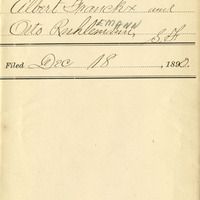 Albert Franckx and
EMANN
Otto Ruhlemann, S. F.
Filed Dec 18, 1890.